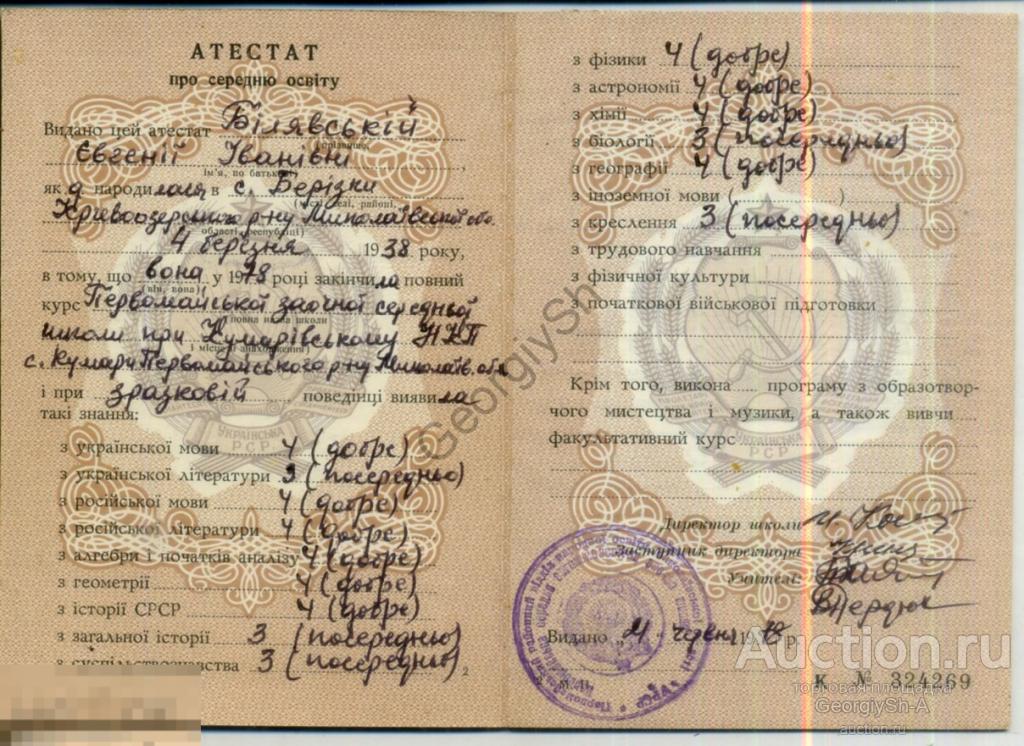 АТЕСТАТ
про середню освіту
Видано цей атестат Білявській
(прізвище,
Євгенії Іванівні
ім'я, по батькові)
як а народилася в с. Берізки
Кривоозерського р-ну Миколаївської обл.
області (республіки)
4 березня 1938 року,
в тому, що вона у 1978 році закінчила повний
(він, вона)
курс Первомайської заочної середньої
(повна назва школи
школи при Кумарівському НКП
і місце знаходження)
с. Кумари Первомайського р-ну Миколаїв. обл.
і при зразковій поведінці виявила
такі знання:
з української мови 4 (добре)
з української літератури 3 (посередньо)
з російської мови 4 (добре)
з російської літератури 4 (добре)
з алгебри і початків аналізу 4 (добре)
з геометрії 4 (добре)
з історії СРСР 4 (добре)
з загальної історії 3 (посередньо)
з суспільствознавства 3 (посередньо)
УКРАЇНСЬКА
РСР
2
з фізики 4 (добре)
з астрономії 4 (добре)
з хімії 4 (добре)
з біології 3 (посередньо)
з географії 4 (добре)
з іноземної мови ( )
з креслення 3 (посередньо)
з трудового навчання
з фізичної культури
з початкової військової підготовки
Крім того, викона програму з образотвор-
чого мистецтва і музики, а також вивчи
факультативний курс
УКРАЇНСЬКА
РСР
Директор школи
Заступник директора
Учителі:
Видано „21" червня 1978 р.
м.
К № 324269
GeorgiySh
Auction.ru
торговая площадка
GeorgiySh-A
auction.ru